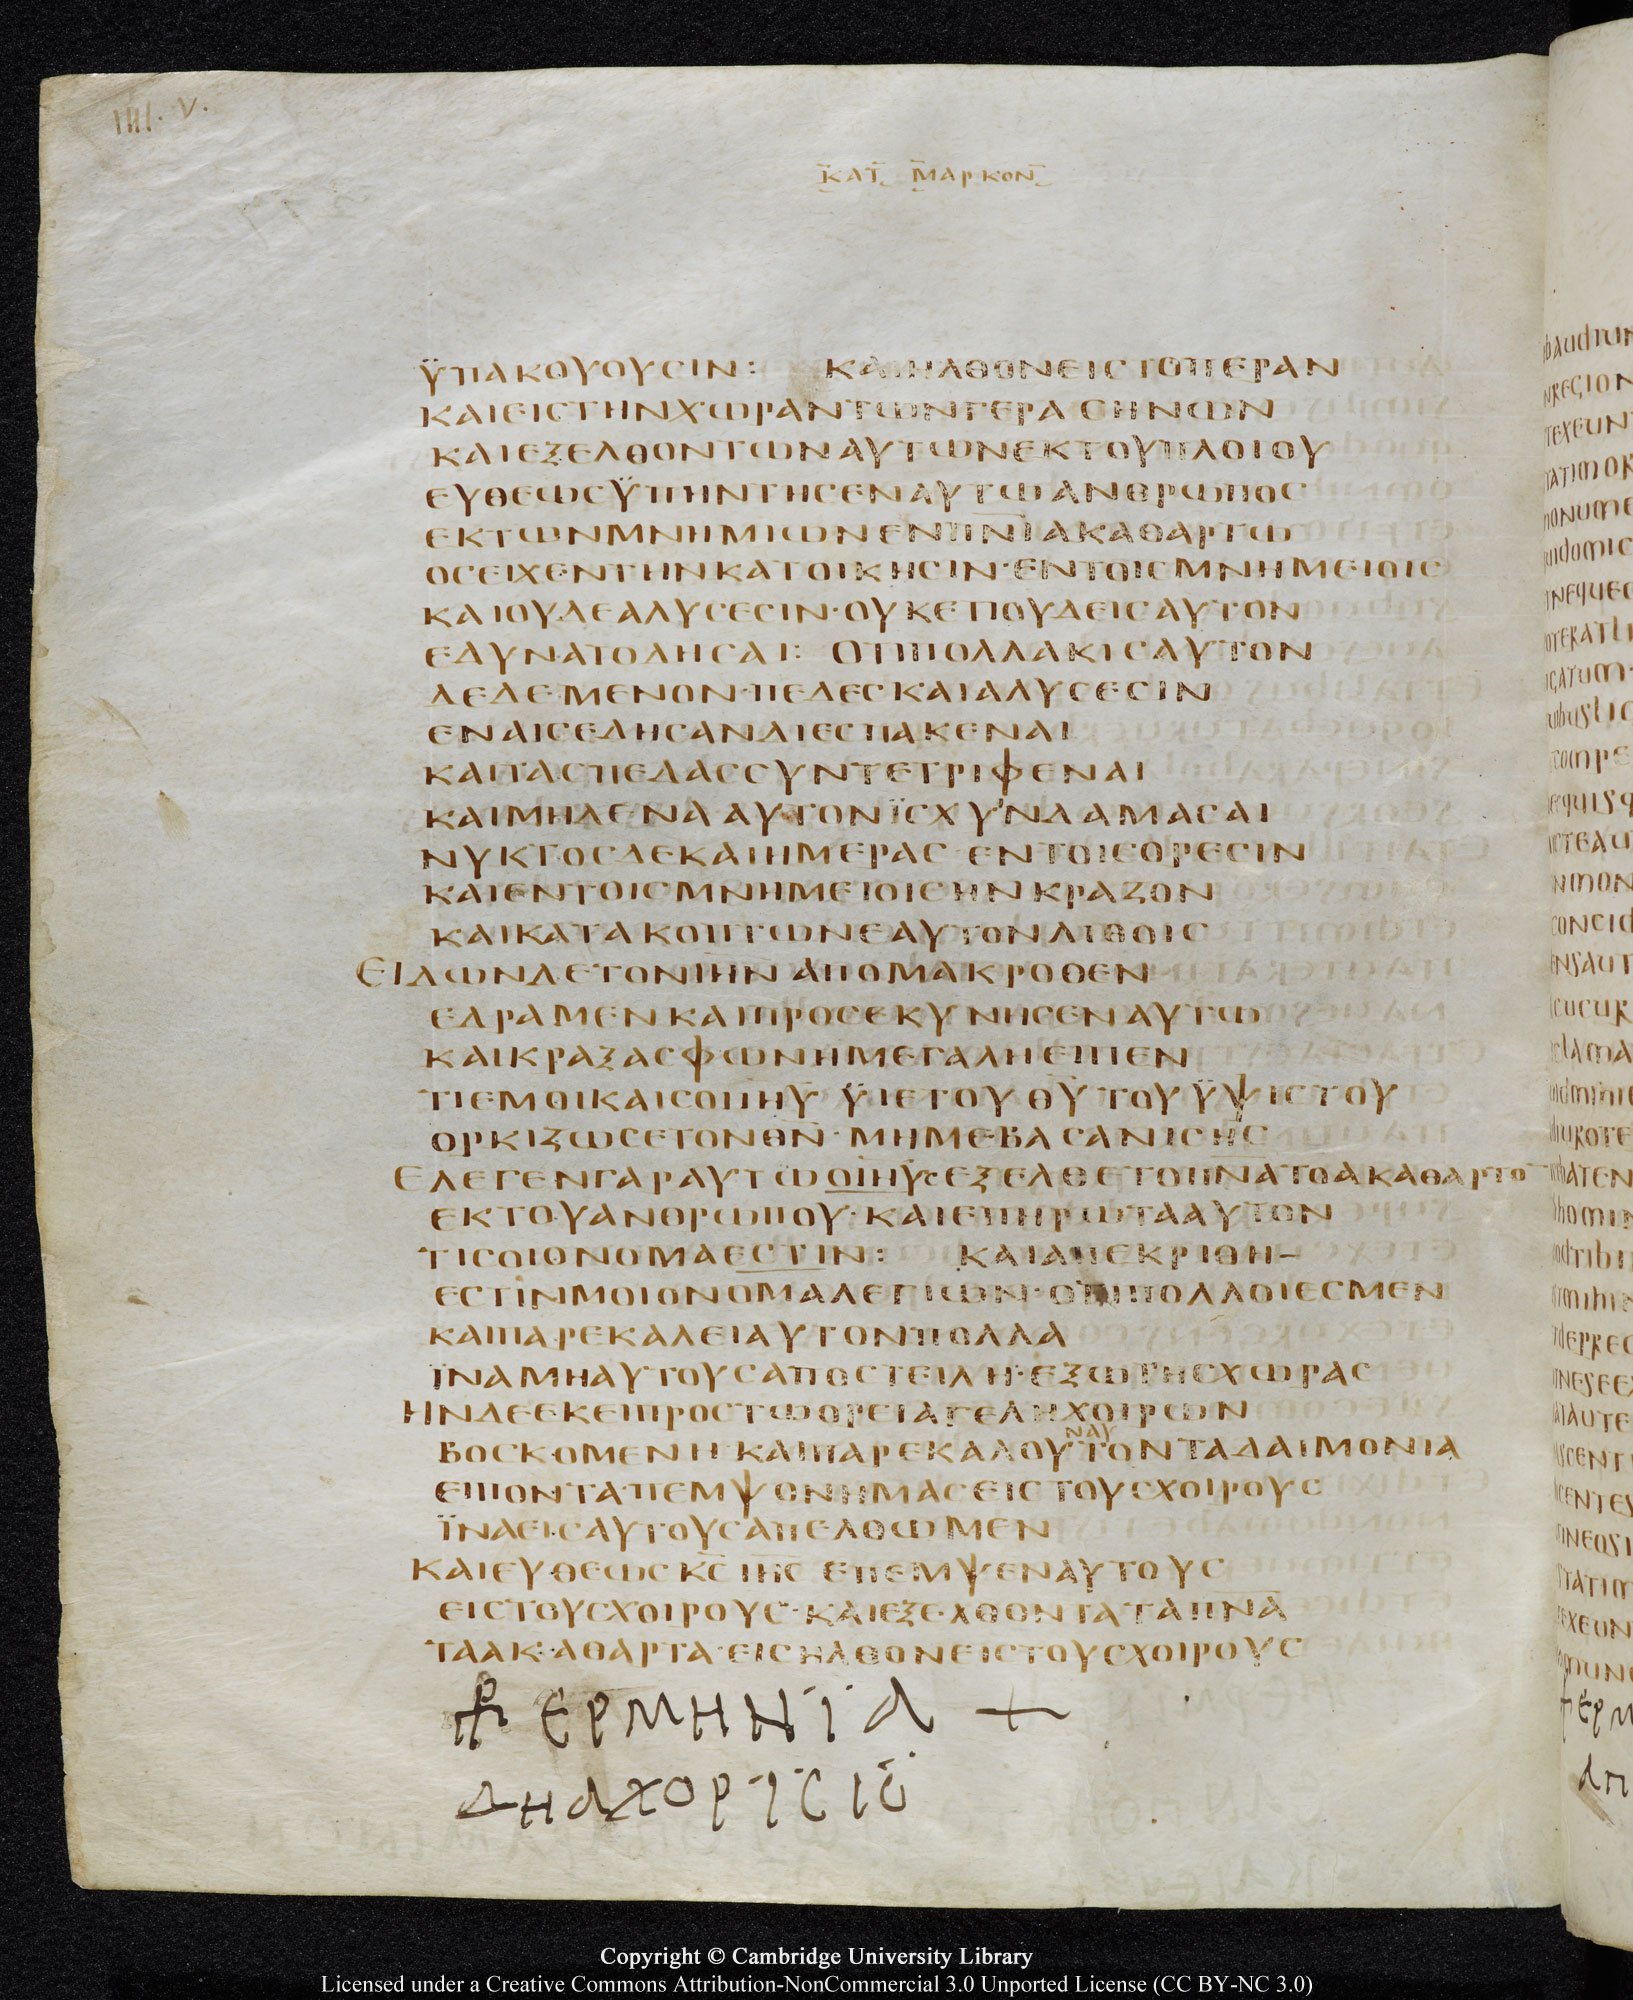 IIII. V.
ΚΑΤ ΜΑΡΚΟΝ
ΫΠΑΚΟΥΟΥCΙΝ: ΚΑΙΗΛΘΟΝΕΙCΤΟΠΕΡΑΝ
ΚΑΙΕΙCΤΗΝΧΩΡΑΝΤΩΝΓΕΡΑCΗΝΩΝ
ΚΑΙΕΞΕΛΘΟΝΤΩΝΑΥΤΩΝΕΚΤΟΥΠΛΟΙΟΥ
ΕΥΘΕΩCΫΠΗΝΤΗCΕΝΑΥΤΩΑΝΘΡΩΠΟC
ΕΚΤΩΝΜΝΗΜΙΩΝΕΝΠΝΙΑΚΑΘΑΡΤΩ
ΟCΕΙΧΕΝΤΗΝΚΑΤΟΙΚΗCΙΝ·ΕΝΤΟΙCΜΝΗΜΕΙΟΙC
ΚΑΙΟΥΔΕΑΛΥCΕCΙΝ·ΟΥΚΕΠΟΥΔΕΙCΑΥΤΟΝ
ΕΔΥΝΑΤΟΔΗCΑΙ: ΟΤΙΠΟΛΛΑΚΙCΑΥΤΟΝ
ΔΕΔΕΜΕΝΟΝ·ΠΕΔΕCΚΑΙΑΛΥCΕCΙΝ
ΕΝΑΙCΕΔΗCΑΝΔΙΕCΠΑΚΕΝΑΙ
ΚΑΙΤΑCΠΕΔΑCCΥΝΤΕΤΡΙΦΕΝΑΙ
ΚΑΙΜΗΔΕΝΑΑΥΤΟΝΪCΧΥΝΔΑΜΑCΑΙ
ΝΥΚΤΟCΔΕΚΑΙΗΜΕΡΑC ΕΝΤΟΙCΟΡΕCΙΝ
ΚΑΙΕΝΤΟΙCΜΝΗΜΕΙΟΙCΗΝΚΡΑΖΟΝ
ΚΑΙΚΑΤΑΚΟΠΤΩΝΕΑΥΤΟΝΛΙΘΟΙC
ΕΙΔΩΝΔΕΤΟΝΙΗΝ ΑΠΟΜΑΚΡΟΘΕΝ
ΕΔΡΑΜΕΝΚΑΙΠΡΟCΕΚΥΝΗCΕΝΑΥΤΩ
ΚΑΙΚΡΑΞΑCΦΩΝΗΜΕΓΑΛΗΕΙΠΕΝ
ΤΙΕΜΟΙΚΑΙCΟΙΙΗΥ ΫΙΕΤΟΥΘΥΤΟΥΫΨΙCΤΟΥ
ΟΡΚΙΖΩCΕΤΟΝΘΝ·ΜΗΜΕΒΑCΑΝΙCΗC
ΕΛΕΓΕΝΓΑΡΑΥΤΩΟΙΗΥCΕΞΕΛΘΕΤΟΠΝΑΤΟΑΚΑΘΑΡΤΟ
ΕΚΤΟΥΑΝΘΡΩΠΟΥ·ΚΑΙΕΠΗΡΩΤΑΑΥΤΟΝ
ΤΙCΟΙΟΝΟΜΑΕCΤΙΝ: ΚΑΙΑΠΕΚΡΙΘΗ
ΕCΤΙΝΜΟΙΟΝΟΜΑΛΕΓΙΩΝ·ΟΤΙΠΟΛΛΟΙΕCΜΕΝ
ΚΑΙΠΑΡΕΚΑΛΕΙΑΥΤΟΝΠΟΛΛΑ
ΪΝΑΜΗΑΥΤΟΥCΑΠΟCΤΕΙΛΗ·ΕΞΩΤΗCΧΩΡΑC
ΗΝΔΕΕΚΕΙΠΡΟCΤΩΟΡΕΙΑΓΕΛΗΧΟΙΡΩΝ
ΝΑΥ
ΒΟCΚΟΜΕΝΗ·ΚΑΙΠΑΡΕΚΑΛΟΥΤΟΝΤΑΔΑΙΜΟΝΙΑ
ΕΙΠΟΝΤΑ·ΠΕΜΨΟΝΗΜΑCΕΙCΤΟΥCΧΟΙΡΟΥC
ΪΝΑΕΙCΑΥΤΟΥCΑΠΕΛΘΩΜΕΝ
ΚΑΙΕΥΘΕΩCΚC ΙΗC ΕΠΕΜΨΕΝΑΥΤΟΥC
ΕΙCΤΟΥCΧΟΙΡΟΥC·ΚΑΙΕΞΕΛΘΟΝΤΑΤΑΠΝΑ
ΤΑΑΚΑΘΑΡΤΑ·ΕΙCΗΛΘΟΝΕΙCΤΟΥCΧΟΙΡΟΥC
ΕΡΜΗΝΪΑ +
ΔΗΑΧΟΡΪCΙC
Copyright © Cambridge University Library
Licensed under a Creative Commons Attribution-NonCommercial 3.0 Unported License (CC BY-NC 3.0)